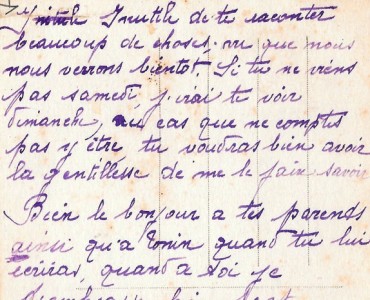 Inutile de te raconter
beaucoup de choses, vu que nous
nous verrons bientot, Si tu ne viens
pas samedi, j'irai te voir
dimanche, au cas que ne comptes
pas y être tu voudras bien avoir
la gentillesse de me le fair savoir
Bien le bonjour a tes parends
ainsi qu'a Tonin quand tu lui
écriras, quand a toi je